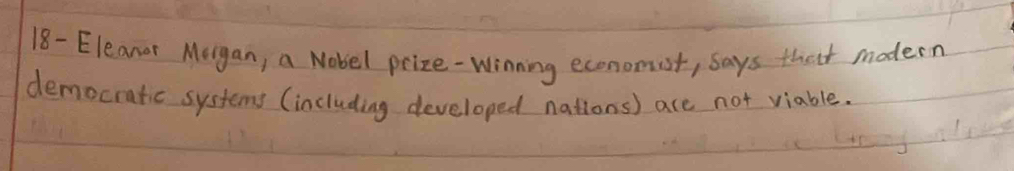 18- Eleanor Morgan, a Nobel prize-winning economist, says that modern
democratic systems (including developed nations) are not viable.